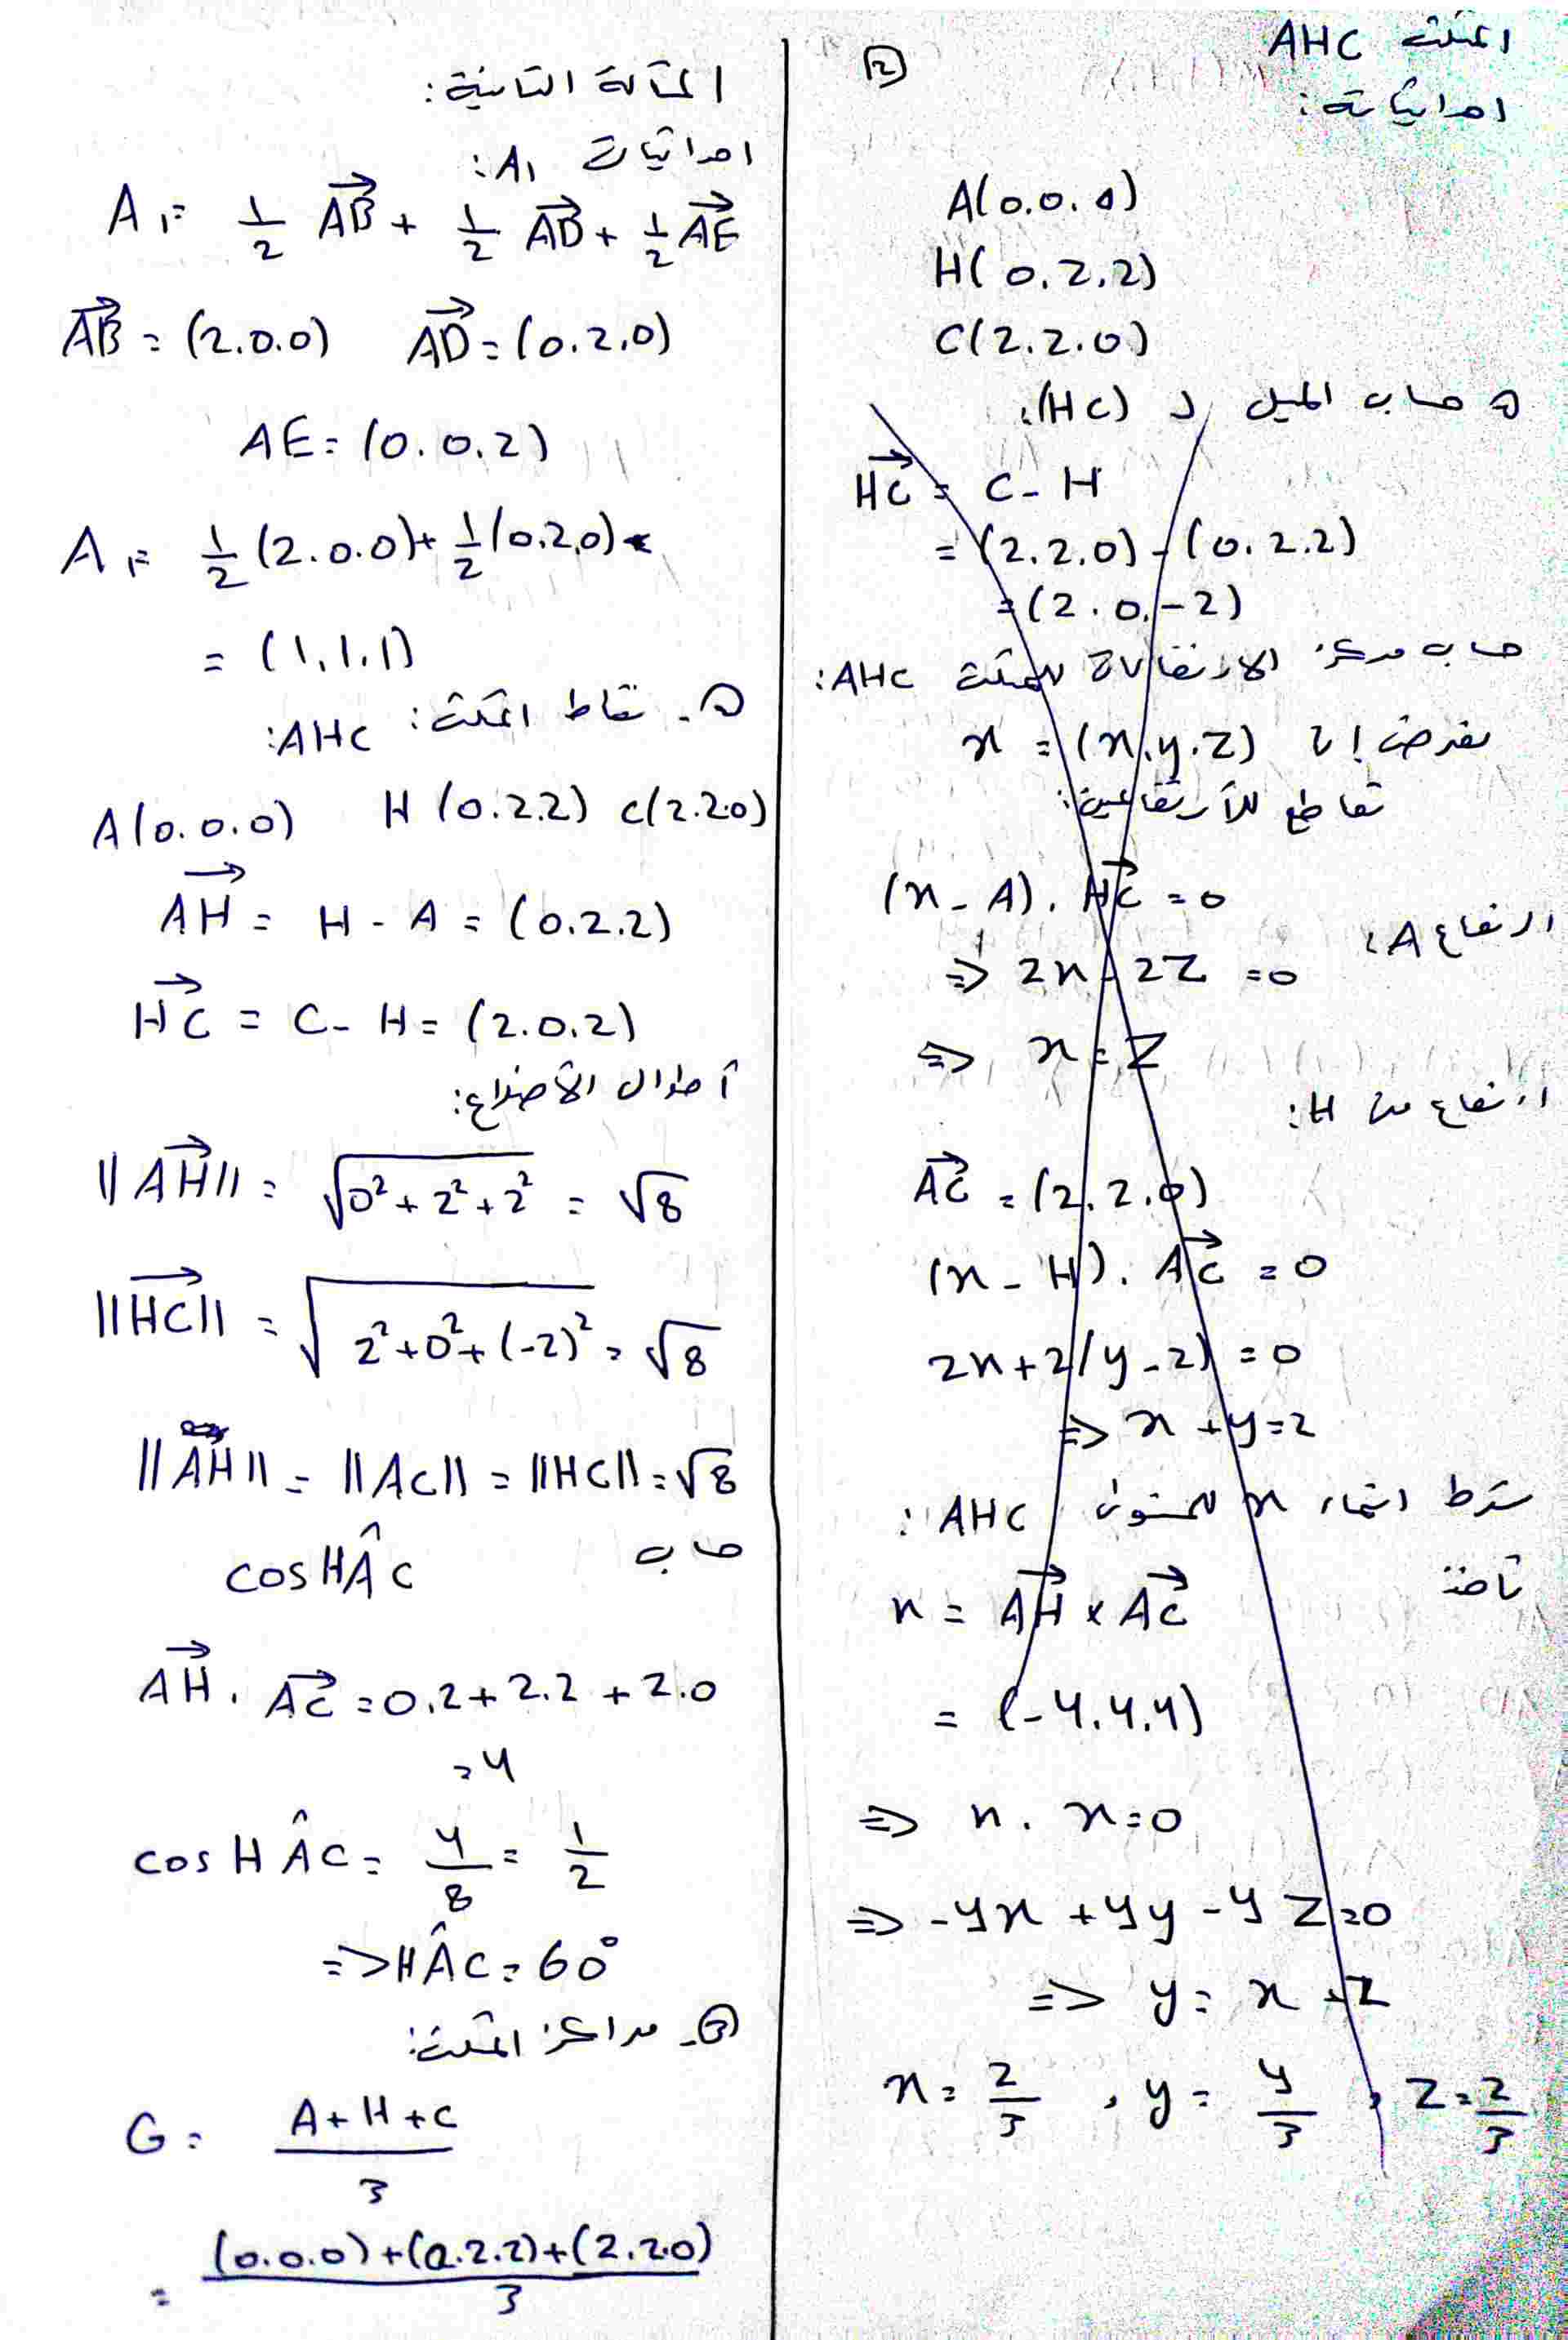 المسألة الثانية:
احداثيات A₁:
A₁ = 1/2 AB + 1/2 AD + 1/2 AE
AB = (2.0.0) AD = (0.2.0)
AE = (0.0.2)
A₁ = 1/2 (2.0.0) + 1/2 (0.2.0) +
= (1.1.1)
2- نقاط المثلث: AHC:
A(0.0.0) H(0.2.2) C(2.2.0)
AH = H - A = (0.2.2)
HC = C - H = (2.0.2)
أطوال الأضلاع:
||AH|| = √(0² + 2² + 2²) = √8
||HC|| = √(2² + 0² + (-2)²) = √8
||AH|| = ||AC|| = ||HC|| = √8
حساب cos HÂC
AH . AC = 0.2 + 2.2 + 2.0
= 4
cos HÂC = 4/8 = 1/2
=> HÂC = 60°
3- مراكز المثلث:
G = (A + H + C)/3
= ((0.0.0) + (0.2.2) + (2.2.0))/3
2
المثلث AHC
احداثياته:
A(0.0.0)
H(0.2.2)
C(2.2.0)
حساب الميل لـ (HC):
HC = C - H
= (2.2.0) - (0.2.2)
= (2.0.-2)
حساب مركز الارتفاعات للمثلث AHC:
نفرض ان x = (x.y.z)
تقاطع للأرتفاعين:
ارتفاع A:
(x - A) . HC = 0
=> 2x - 2z = 0
=> x = z
ارتفاع من H:
AC = (2.2.0)
(x - H) . AC = 0
2x + 2(y - 2) = 0
=> x + y = 2
شرط انتماء x للمستوى AHC:
n = AH × AC
= (-4.4.4)
=> n . x = 0
=> -4x + 4y - 4z = 0
=> y = x + z
x = 2/3 , y = 4/3 , z = 2/3